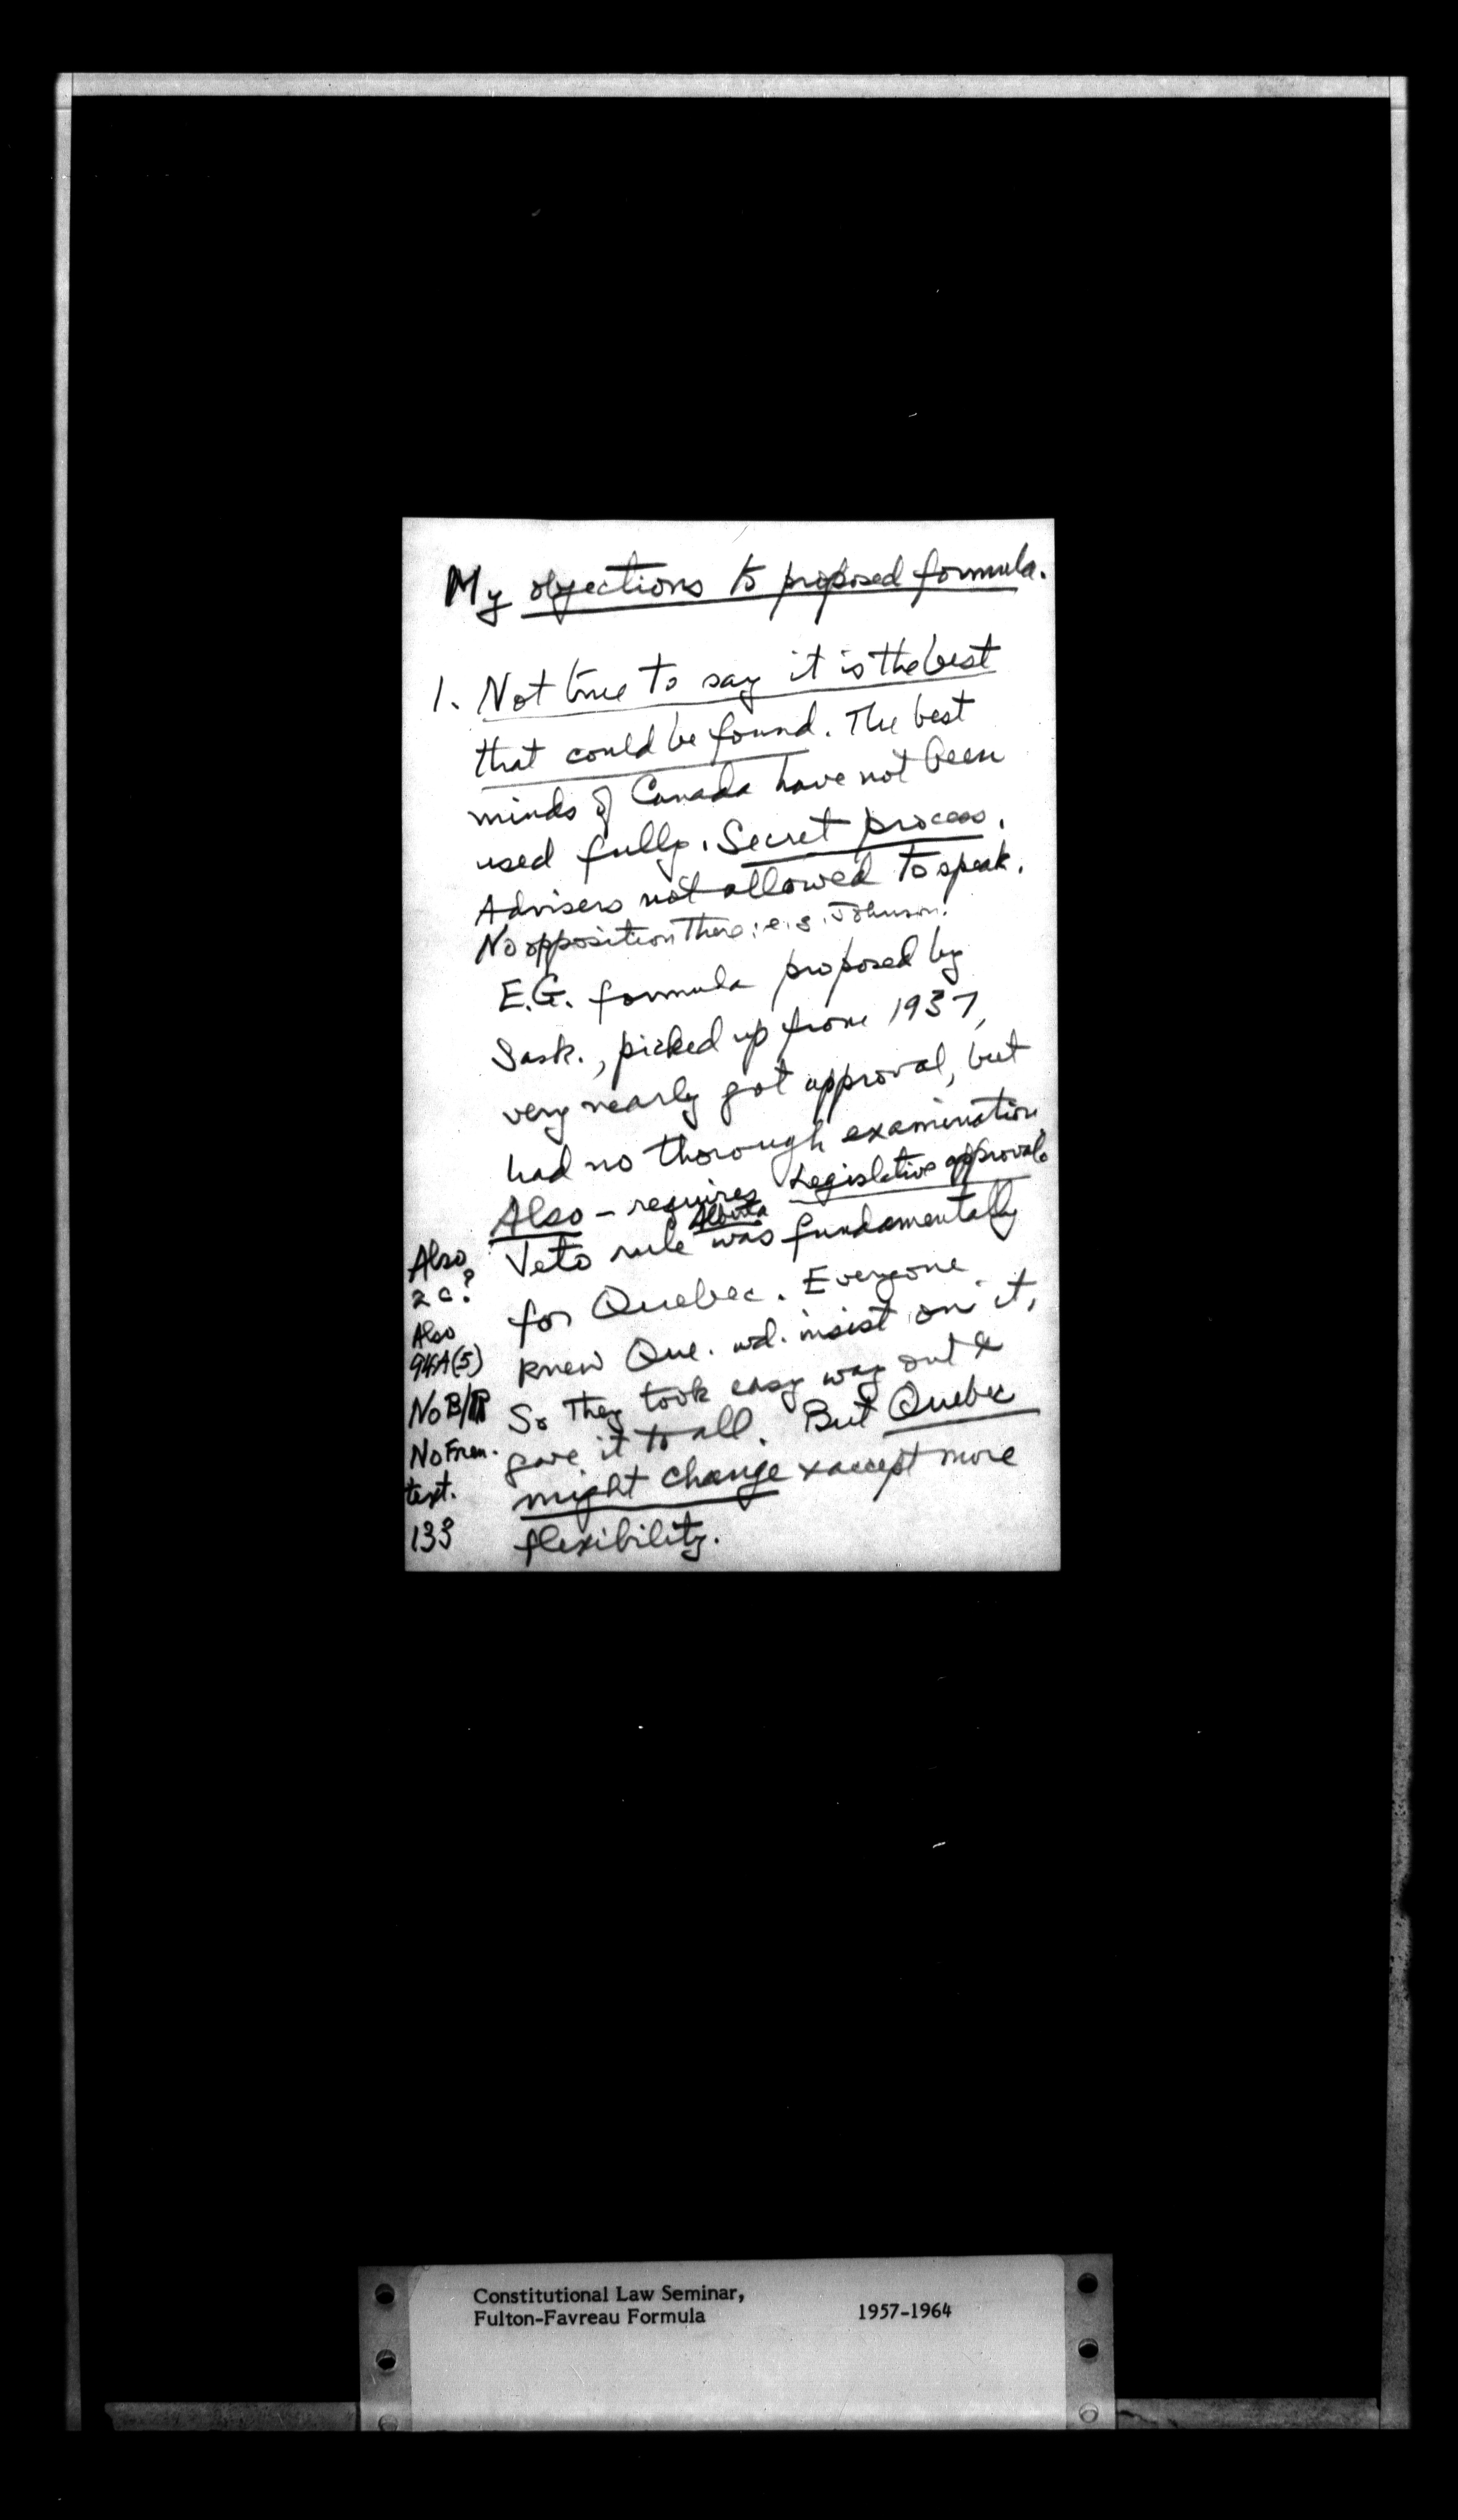 My objections to proposed formula.
1. Not true to say it is the best
that could be found. The best
minds of Canada have not been
used fully. Secret process.
Advisers not allowed to speak.
No opposition there: e.g. Johnson!
E.G. formula proposed by
Sask., picked up from 1937,
very nearly got approval, but
had no thorough examination.
Also - requires Legislative approval.
Alberta
Veto rule was fundamentally
for Quebec. Everyone
knew Que. wd. insist on it,
So they took easy way out &
gave it to all. But Quebec
might change & accept more
flexibility.
Also
2 c?
Also
94A(5)
No B/R
No Fren.
text.
133
Constitutional Law Seminar,
Fulton-Favreau Formula 1957-1964